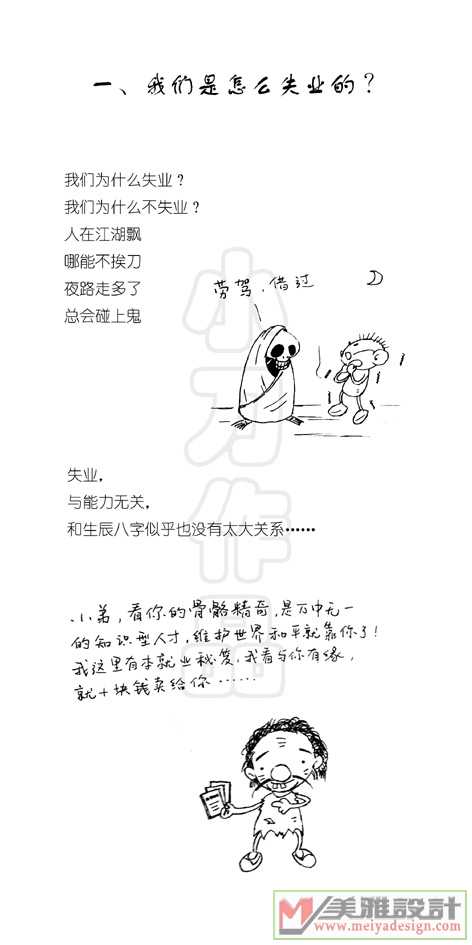 一、我们是怎么失业的？
我们为什么失业？
我们为什么不失业？
人在江湖飘
哪能不挨刀
夜路走多了
总会碰上鬼
劳驾，借过
失业，
与能力无关，
和生辰八字似乎也没有太大关系……
小弟，看你的骨骼精奇，是万中无一
的知识型人才，维护世界和平就靠你了！
我这里有本就业秘笈，我看与你有缘，
就十块钱卖给你……
小刀作品
美雅設計
www.meiyadesign.com